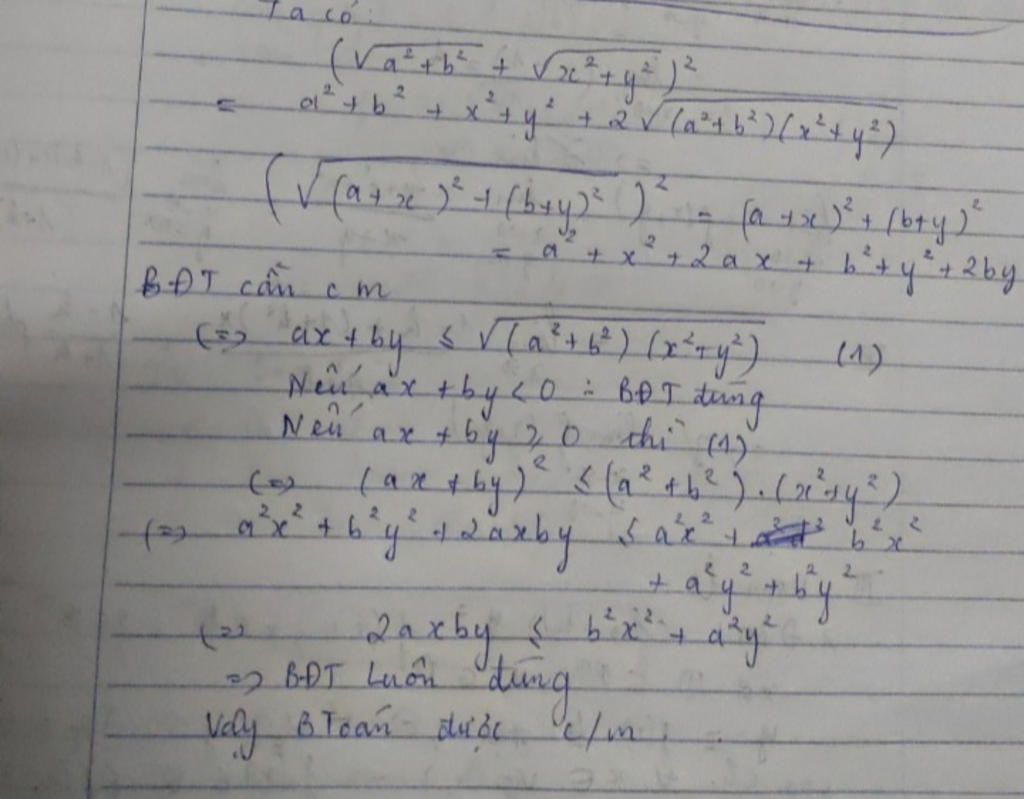 Ta có:
(√(a² + b²) + √(x² + y²))²
= a² + b² + x² + y² + 2√((a² + b²)(x² + y²))
(√((a + x)² + (b+y)²))² = (a + x)² + (b+y)²
= a² + x² + 2ax + b² + y² + 2by
BĐT cần cm
(=> ax + by ≤ √((a² + b²)(x² + y²)) (1)
Nếu ax + by < 0 : BĐT đúng
Nếu ax + by ≥ 0 thì (1)
(=> (ax + by)² ≤ (a² + b²).(x² + y²)
(=> a²x² + b²y² + 2axby ≤ a²x² + b²x²
+ a²y² + b²y²
(=> 2axby ≤ b²x² + a²y²
=> BĐT luôn đúng
Vậy BToán được c/m